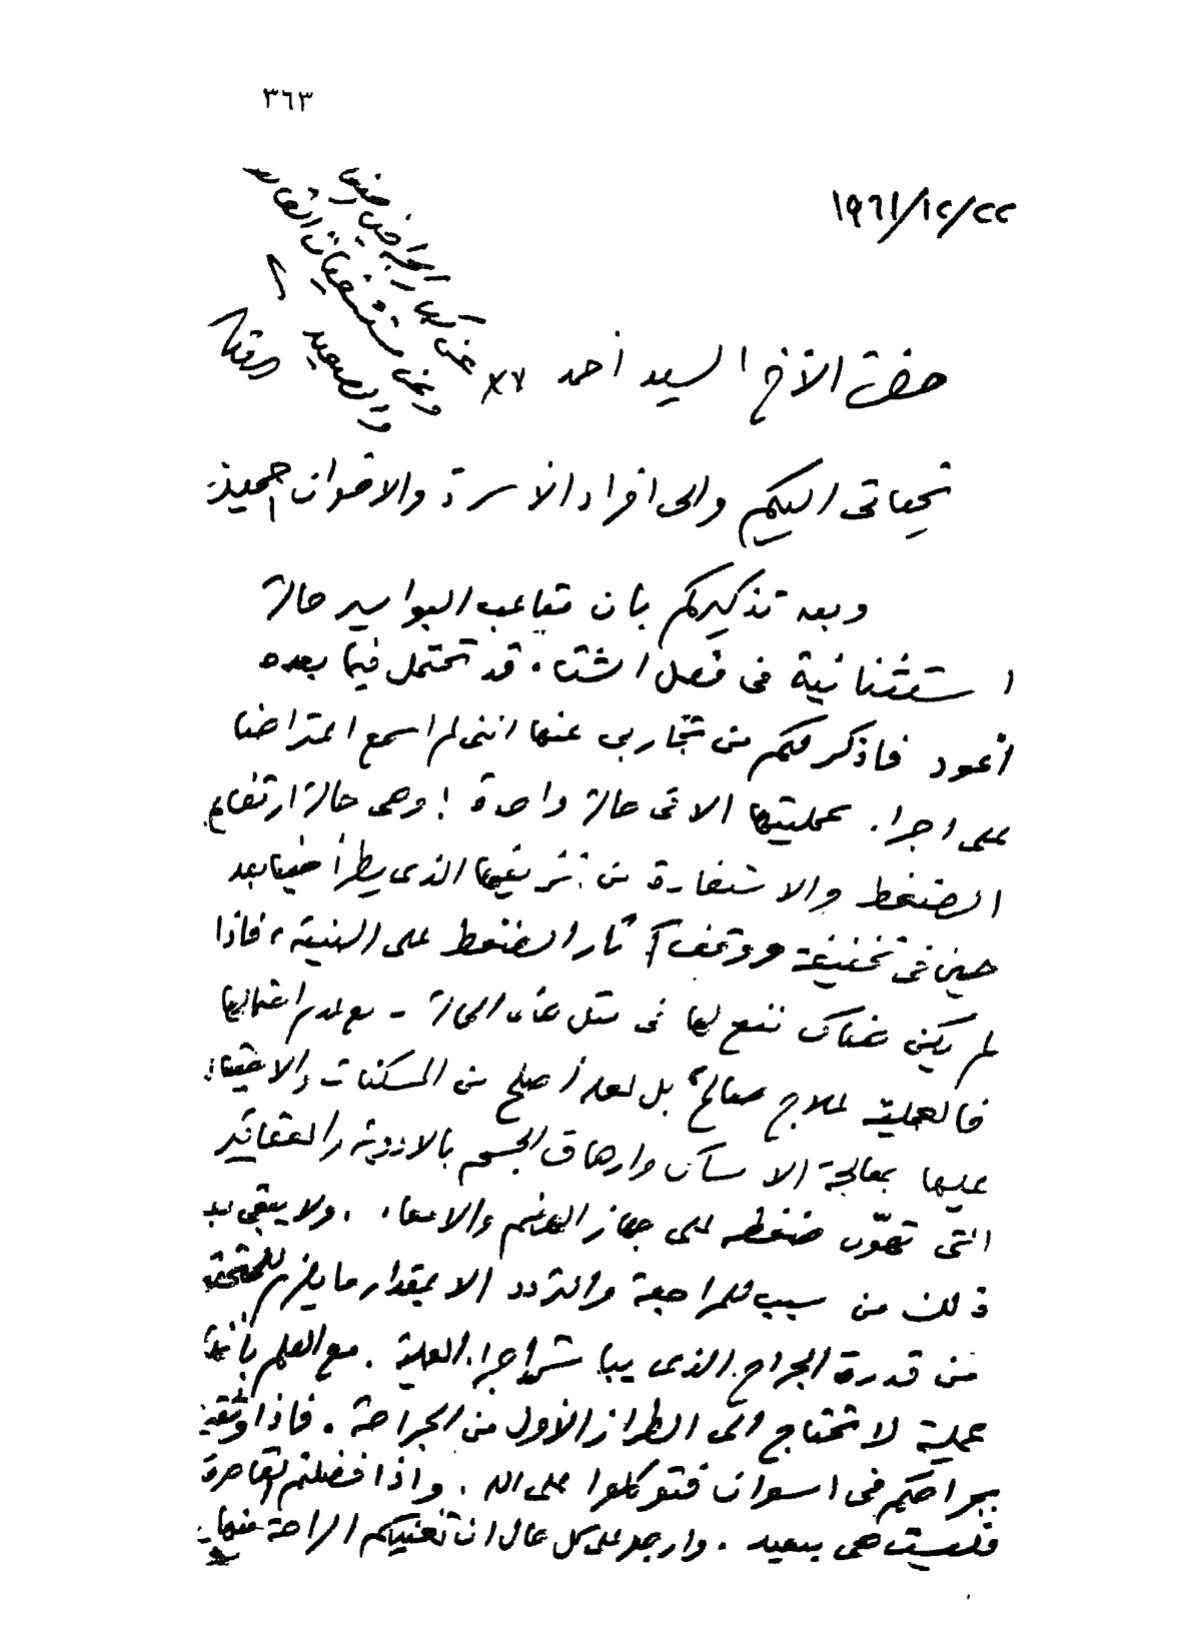 ٣٦٣
١٩٦١/١٢/٢٢
حضرة الأخ السيد أحمد
تحياتى اليكم والى افراد الأسرة والاخوان اجمعين
وبعد تذكيركم بان متاعب البواسير حالة
استثنائية فى فصل الشتاء قد تحتمل فيما بعده
أعود فاذكر لكم من تجاربى عنها اننى لم اسمع اعتراضا
على اجراء عمليتها الا فى حالة واحدة ! وهى حالة ارتفاع
الضغط والاستفادة من نزيفها الذى يطرأ حينا بعد
حين فى تخفيفه ووقف آثار الضغط على البنية ، فاذا
لم يكن هناك نفع لها فى مثل هذه الحالة - مع عدم اهمالها
فالعملية علاج صالح بل لعله أصلح من المسكنات والاحتيال
عليها بمعالجة الامساك وارهاق الجسم بالادوية والعقاقير
التى تهوّن ضغطه على جهاز الهضم والامعاء . ولا يبقى بعد
ذلك من سبب للمراجعة والتردد الا بمقدار ما يلزم للتحقق
من قدرة الجراح الذى يباشر إجراء العملية . مع العلم بأنها
عملية لا تحتاج الى الطراز الأول من الجراحة . فاذا وثقتم
بجراحكم فى اسوان فتوكلوا على الله . واذا فضلتم القاهرة
فليست هى ببعيد . وارجو على كل حال ان تغنيكم الراحة عنها
عن
وعن مستشفيات القاهرة
والصعيد
العقاد